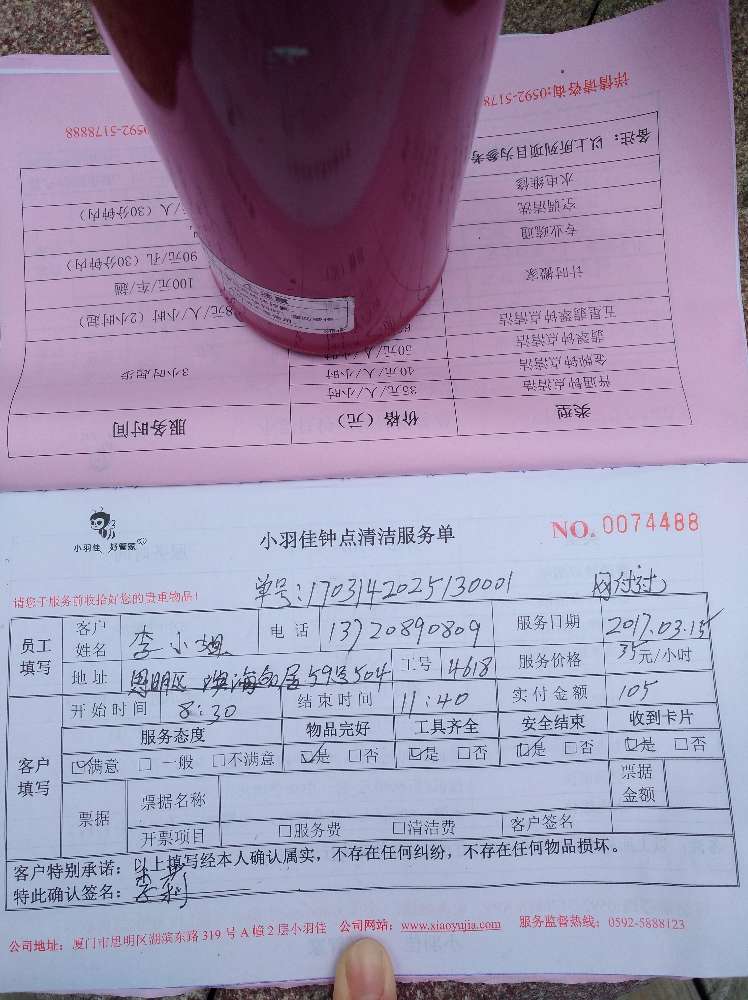 详情请咨询:0592-5178
0592-5178888
备注：以上所列项目为参考
水电维修
空调清洗
元/人（30分钟内）
专业疏通
90元/孔（30分钟内）
计时搬家
100元/车/趟
五星翡翠钟点清洁
8元/人/小时（2小时起）
翡翠钟点清洁
50元/人/小时
金牌钟点清洁
40元/人/小时
3小时起步
普通钟点清洁
35元/人/小时
类型
价格（元）
服务时间
小羽佳 好管家
小羽佳钟点清洁服务单
NO. 0074488
请您于服务前收拾好您的贵重物品！
单号:1703142025130001
网付讫
员工填写
客户姓名 李小姐 电话 13720890809 服务日期 2017.03.15
地址 思明区 59号504 工号 4618 服务价格 35元/小时
开始时间 8:30 结束时间 11:40 实付金额 105
客户填写
服务态度 物品完好 工具齐全 安全结束 收到卡片
☑满意 □一般 □不满意 ☑是 □否 ☑是 □否 ☑是 □否 ☑是 □否
票据 票据名称 票据金额
开票项目 □服务费 □清洁费 客户签名
客户特别承诺：以上填写经本人确认属实，不存在任何纠纷，不存在任何物品损坏。
特此确认签名：李莉
公司地址：厦门市思明区湖滨东路319号A幢2层小羽佳 公司网站：www.xiaoyujia.com 服务监督热线：0592-5888123